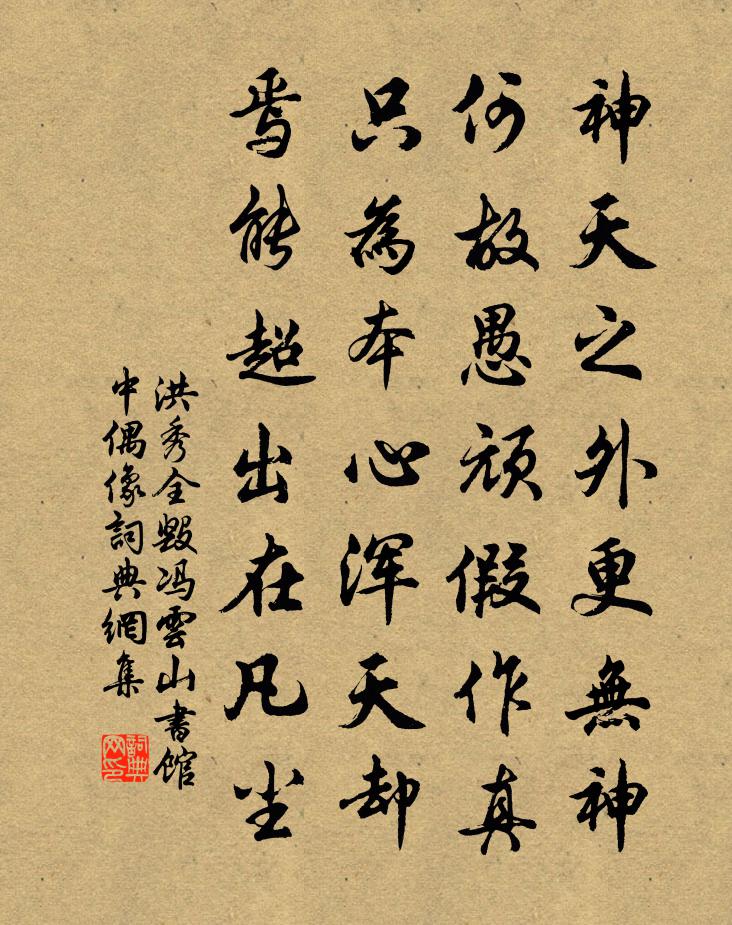 神天之外更無神
何故愚頑假作真
只為本心浑天却
焉能超出在凡尘
洪秀全毀冯雲山書馆
中偶像詞典網集
詞典
网印